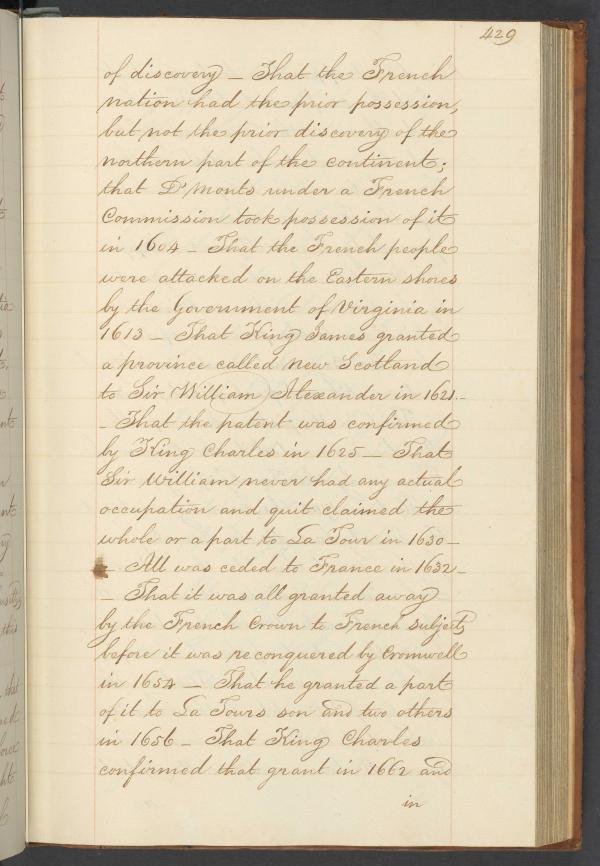 429
of discovery – That the French
nation had the prior possession,
but not the prior discovery of the
northern part of the continent;
that D'Monts under a French
Commission took possession of it
in 1604 – That the French people
were attacked on the Eastern shores
by the Government of Virginia in
1613 – That King James granted
a province called New Scotland
to Sir William Alexander in 1621 –
– That the patent was confirmed
by King Charles in 1625 – That
Sir William never had any actual
occupation and quit claimed the
whole or a part to La Tour in 1630 –
– All was ceded to France in 1632 –
– That it was all granted away
by the French Crown to French subjects
before it was reconquered by Cromwell
in 1654 – That he granted a part
of it to La Tours son and two others
in 1656 – That King Charles
confirmed that grant in 1662 and
in